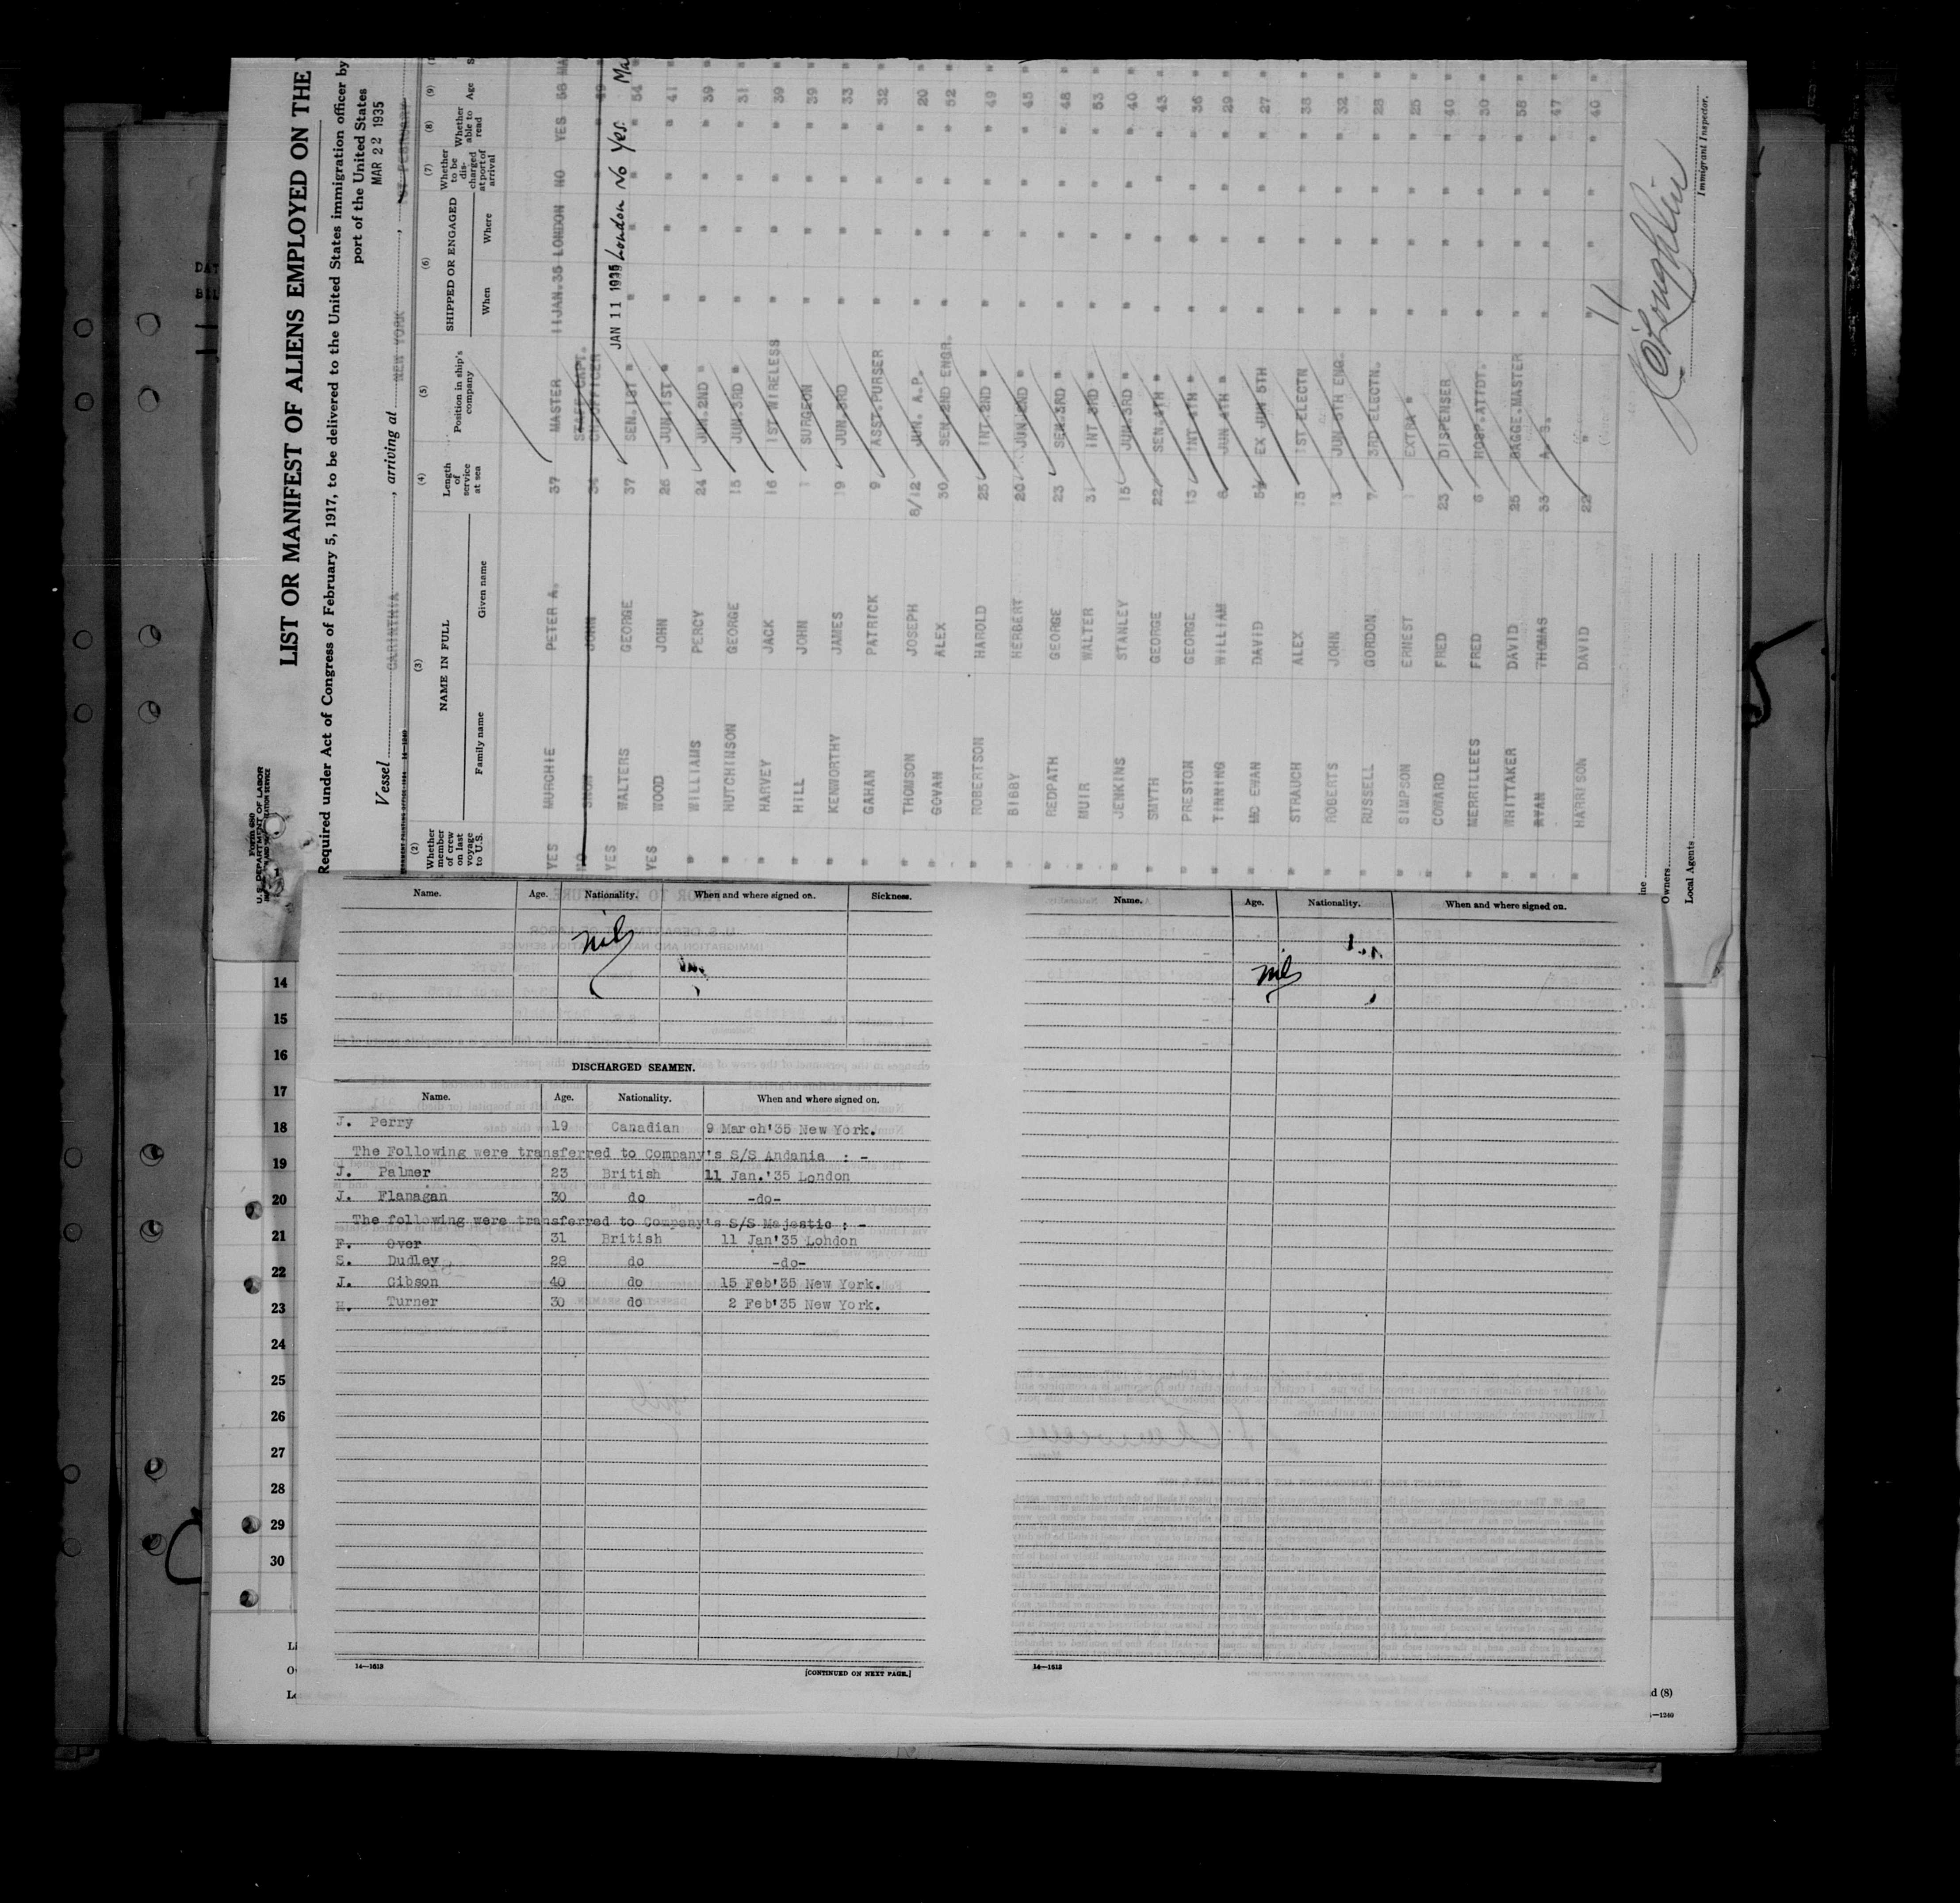 Form 680
U. S. DEPARTMENT OF LABOR
LIST OR MANIFEST OF ALIENS EMPLOYED ON THE
Required under Act of Congress of February 5, 1917, to be delivered to the United States immigration officer by
port of the United States
MAR 22 1935
Vessel CARINTHIA, arriving at NEW YORK, 1ST FEBRUARY
(2) (3) (4) (5) (6) (7) (8) (9)
Whether member of crew on last voyage to U.S. NAME IN FULL Family name Given name Length of service at sea Position in ship's company SHIPPED OR ENGAGED When Where Whether to be discharged at port of arrival Whether able to read Age
YES MURCHIE PETER A. 37 MASTER 11JAN.35 LONDON NO YES 58 MA
NO SNOW JOHN 34 STAFF CAPT. CH.OFFICER " 49
YES WALTERS GEORGE 37 SEN.1ST " JAN 11 1935 London No Yes 54 Ma
YES WOOD JOHN 26 JUN.1ST " " " " " 41 "
" WILLIAMS PERCY 24 JUN.2ND " " " " " 39 "
" HUTCHINSON GEORGE 15 JUN.3RD " " " " " 31 "
" HARVEY JACK 16 1ST WIRELESS " " " " 39 "
" HILL JOHN 1 SURGEON " " " " 39 "
" KENWORTHY JAMES 19 JUN.3RD " " " " 33 "
" GAHAN PATRICK 9 ASST.PURSER " " " " 32 "
" THOMSON JOSEPH 8/12 JUN. A.P. " " " " 20 "
" GOVAN ALEX 30 SEN.2ND ENGR. " " " " 52 "
" ROBERTSON HAROLD 25 INT.2ND " " " " " 49 "
" BIBBY HERBERT 20 JUN.2ND " " " " " 45 "
" REDPATH GEORGE 23 SEN.3RD " " " " " 48 "
" MUIR WALTER 31 INT.3RD " " " " " 53 "
" JENKINS STANLEY 15 JUN.3RD " " " " " 40 "
" SMYTH GEORGE 22 SEN.4TH " " " " " 43 "
" PRESTON GEORGE 13 INT.4TH " " " " " 36 "
" TINNING WILLIAM 8 JUN.4TH " " " " " 29 "
" MC EWAN DAVID 5½ EX JUN 5TH " " " " 27 "
" STRAUCH ALEX 15 1ST ELECTN " " " " 38 "
" ROBERTS JOHN 13 JUN.5TH ENG. " " " " 32 "
" RUSSELL GORDON 7 3RD ELECTN. " " " " 28 "
" SIMPSON ERNEST 1 EXTRA " " " " " 25 "
" COWARD FRED 23 DISPENSER " " " " 40 "
" MERRILLES FRED 6 HOSP.ATTDT. " " " " 30 "
" WHITTAKER DAVID 25 BAGGE.MASTER " " " " 58 "
" RYAN THOMAS 33 A. B. " " " " 47 "
" HARRISON DAVID 22 " " " " " 40 "
Immigrant Inspector.
Owners
Local Agents
Name. Age. Nationality. When and where signed on. Sickness.
nil
DISCHARGED SEAMEN.
Name. Age. Nationality. When and where signed on.
J. Perry 19 Canadian 9 March'35 New York.
The Following were transferred to Company's S/S Andania : -
J. Palmer 23 British 11 Jan.'35 London
J. Flanagan 30 do -do-
The following were transferred to Company's S/S Majestic : -
F. Over 31 British 11 Jan'35 London
S. Dudley 28 do -do-
J. Gibson 40 do 15 Feb'35 New York.
H. Turner 30 do 2 Feb'35 New York.
14—1613 [CONTINUED ON NEXT PAGE.]
Name. Age. Nationality. When and where signed on.
nil
14—1613
14
15
16
17
18
19
20
21
22
23
24
25
26
27
28
29
30
d (8)
—1240